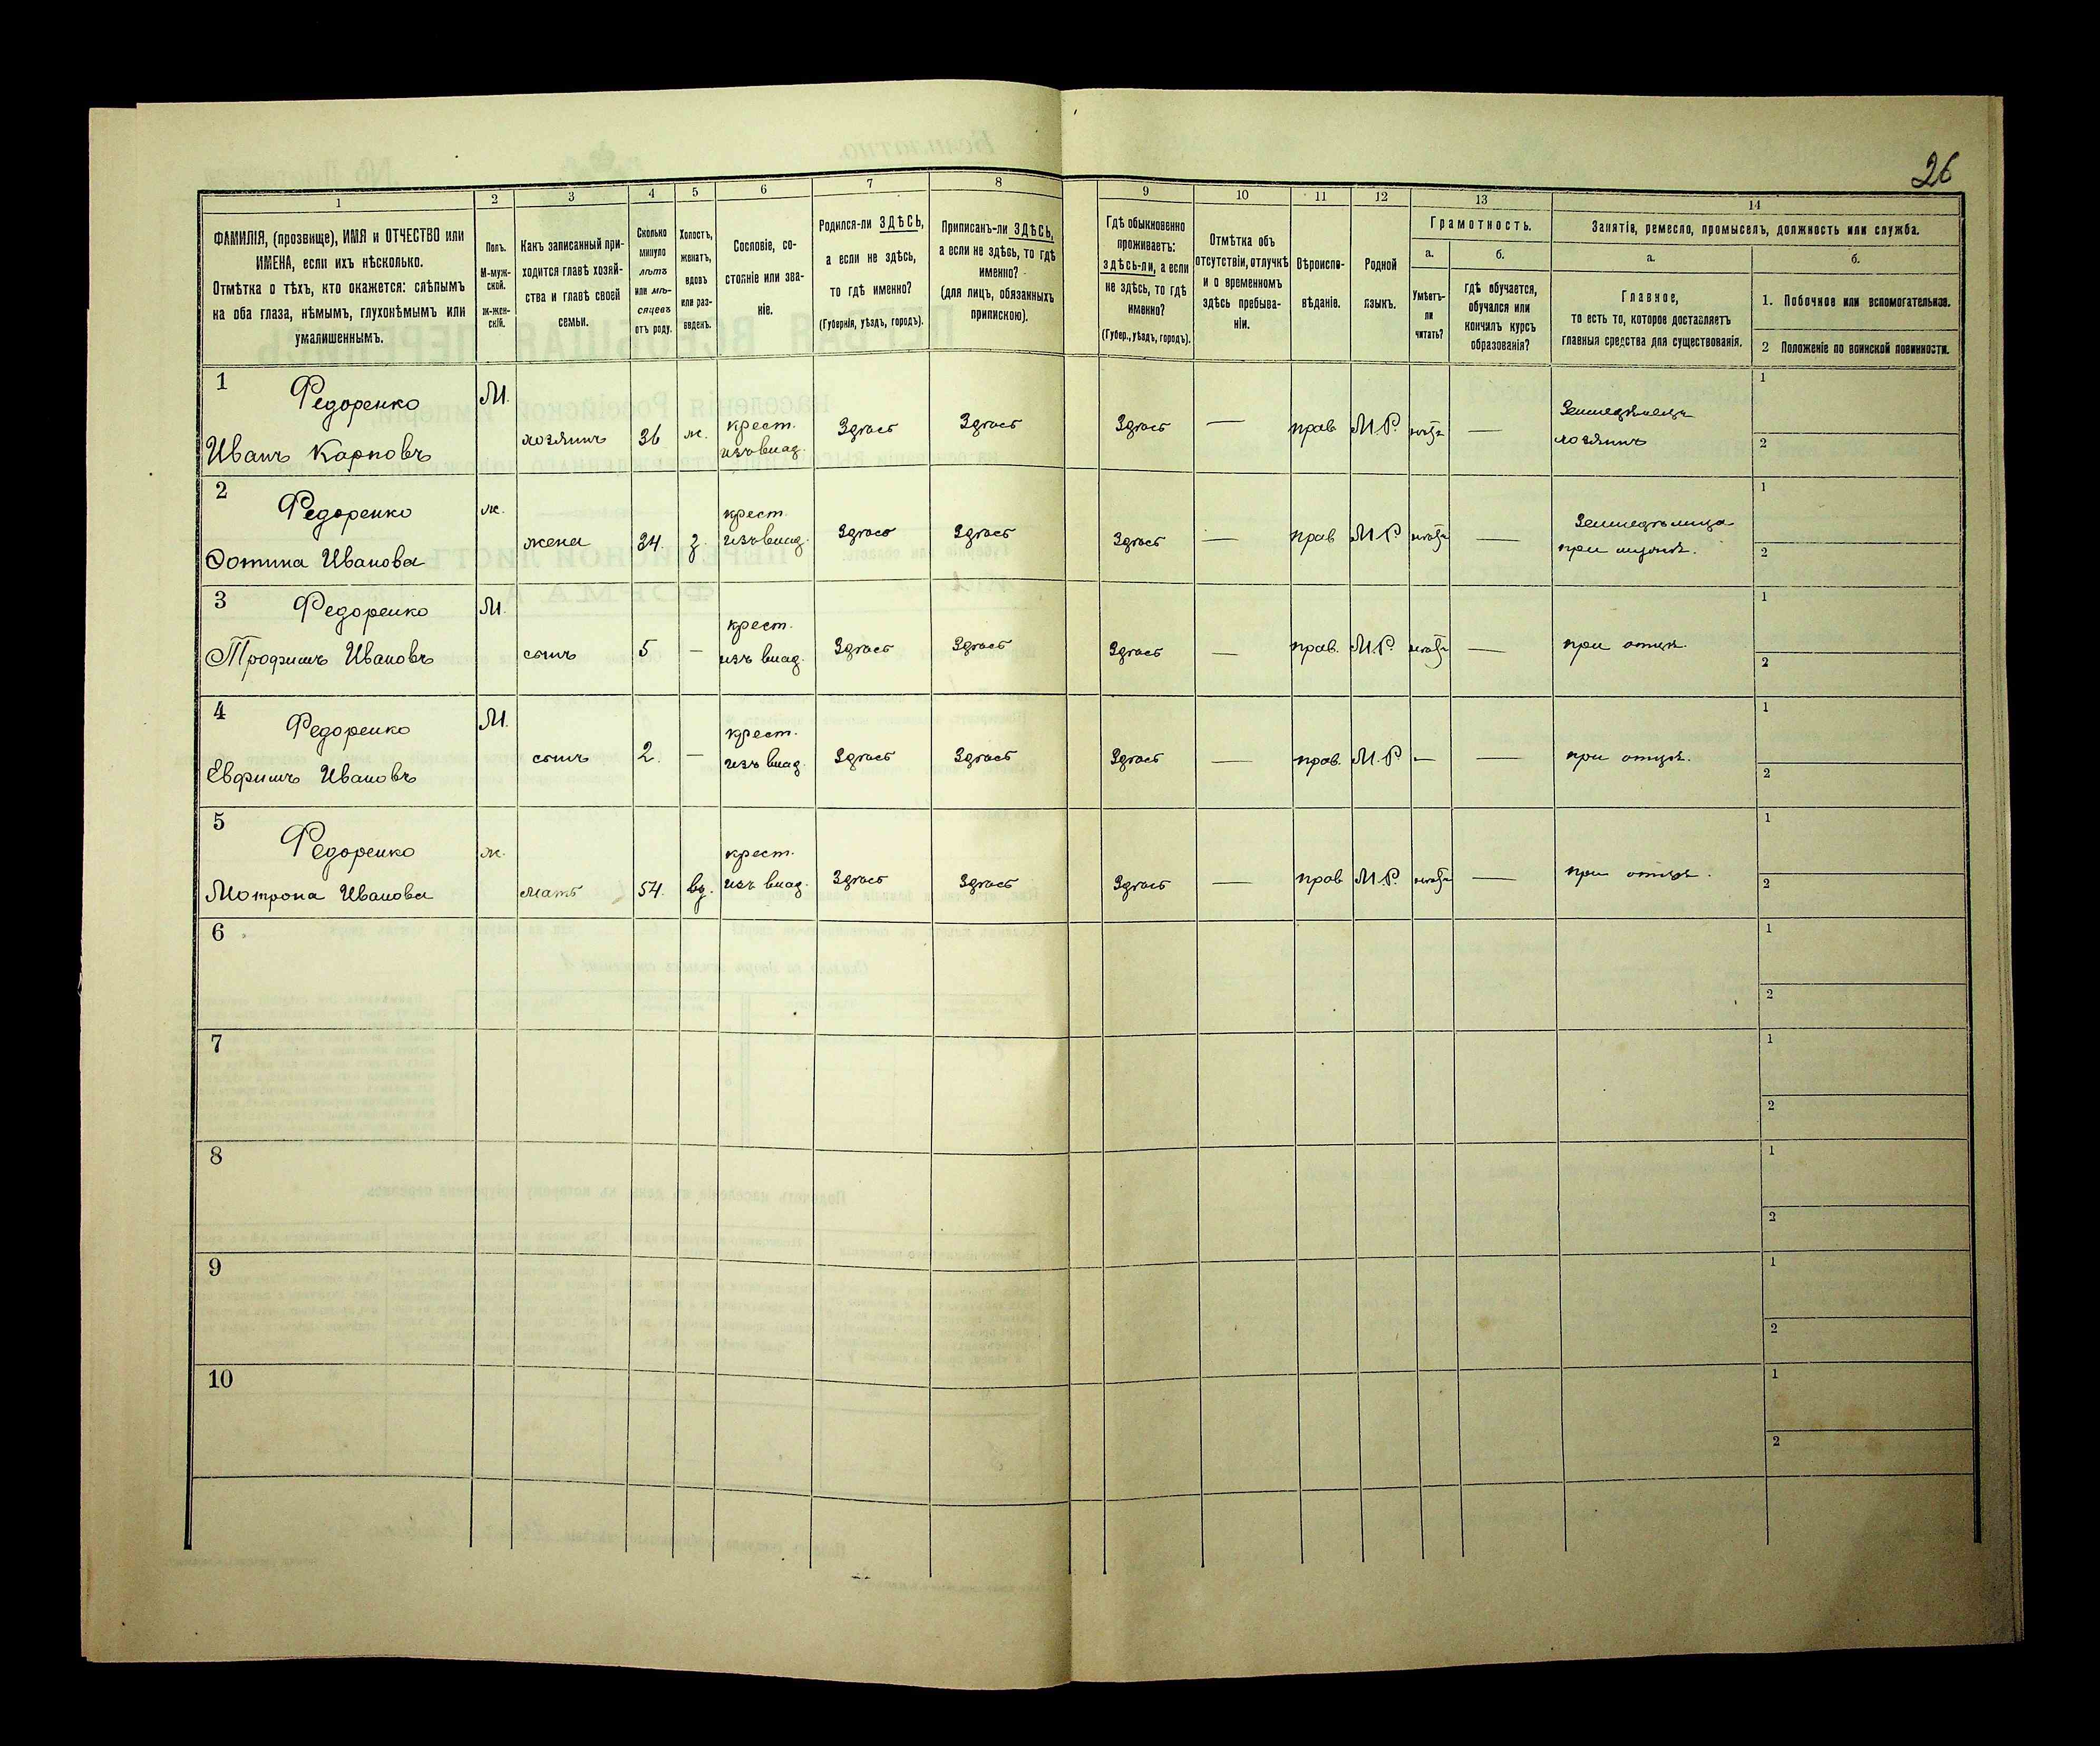 26
1
2
3
4
5
6
7
8
9
10
11
12
13
14
ФАМИЛІЯ, (прозвище), ИМЯ и ОТЧЕСТВО или
ИМЕНА, если ихъ нѣсколько.
Отмѣтка о тѣхъ, кто окажется: слѣпымъ
на оба глаза, нѣмымъ, глухонѣмымъ или
умалишеннымъ.
Полъ.
М-муж-
ской.
ж-жен-
скій.
Какъ записанный при-
ходится главѣ хозяй-
ства и главѣ своей
семьи.
Сколько
минуло
лѣтъ
или мѣ-
сяцевъ
отъ роду.
Холостъ,
женатъ,
вдовъ
или раз-
веденъ.
Сословіе, со-
стояніе или зва-
ніе.
Родился-ли ЗДѢСЬ,
а если не здѣсь,
то гдѣ именно?
(Губернія, уѣздъ, городъ).
Приписанъ-ли ЗДѢСЬ,
а если не здѣсь, то гдѣ
именно?
(для лицъ, обязанныхъ
припискою).
Гдѣ обыкновенно
проживаетъ:
здѣсь-ли, а если
не здѣсь, то гдѣ
именно?
(Губер., уѣздъ, городъ).
Отмѣтка объ
отсутствіи, отлучкѣ
и о временномъ
здѣсь пребыва-
ніи.
Вѣроиспо-
вѣданіе.
Родной
языкъ.
Грамотность.
а.
Умѣетъ-
ли
читать?
б.
гдѣ обучается,
обучался или
кончилъ курсъ
образованія?
Занятія, ремесло, промыселъ, должность или служба.
а.
Главное,
то есть то, которое доставляетъ
главныя средства для существованія.
б.
1. Побочное или вспомогательное.
2 Положеніе по воинской повинности.
1
Федоренко
Иванъ Карповъ
М.
хозяинъ
36
ж.
крест.
изъ влад.
Здѣсь
Здѣсь
Здѣсь
—
прав
М.Р.
—
Земледѣлецъ
хозяинъ
1
2
2
Федоренко
Фотина Иванова
ж.
жена
34.
з.
крест.
изъ влад.
Здѣсь
Здѣсь
Здѣсь
—
прав
М.Р.
—
Земледѣлица
при мужѣ.
1
2
3
Федоренко
Трофимъ Ивановъ
М.
сынъ
5
—
крест.
изъ влад.
Здѣсь
Здѣсь
Здѣсь
—
прав.
М.Р.
—
при отцѣ.
1
2
4
Федоренко
Евфимъ Ивановъ
М.
сынъ
2.
—
крест.
изъ влад.
Здѣсь
Здѣсь
Здѣсь
—
прав.
М.Р.
—
—
при отцѣ.
1
2
5
Федоренко
Мотрона Иванова
ж.
мать
54.
вд.
крест.
изъ влад.
Здѣсь
Здѣсь
Здѣсь
—
прав
М.Р.
—
при отцѣ.
1
2
6
1
2
7
1
2
8
1
2
9
1
2
10
1
2